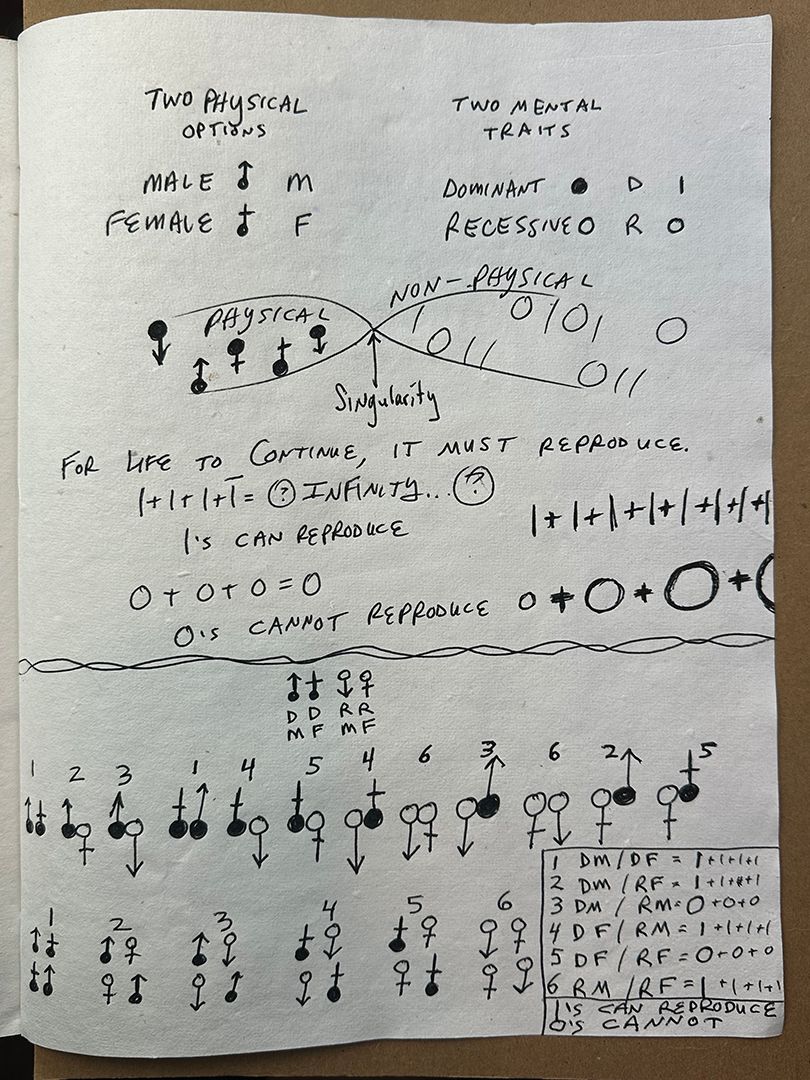 TWO PHYSICAL
OPTIONS
MALE M
FEMALE F
TWO MENTAL
TRAITS
DOMINANT D 1
RECESSIVE R 0
PHYSICAL
NON-PHYSICAL
1 0 1 0 1 0
0 1 1
0 1 1
Singularity
FOR LIFE TO CONTINUE, IT MUST REPRODUCE.
1+1+1+1= ? INFINITY... ?
1'S CAN REPRODUCE
1+1+1+1+1+1+1
0+0+0=0
0'S CANNOT REPRODUCE
0+0+0+0
D D R R
M F M F
1 2 3 1 4 5 4 6 3 6 2 5
1 2 3 4 5 6
1 DM/DF = 1+1+1+1
2 DM/RF = 1+1+1+1
3 DM/RM=0+0+0
4 DF/RM=1+1+1+1
5 DF/RF=0+0+0
6 RM/RF=1+1+1+1
1'S CAN REPRODUCE
0'S CANNOT